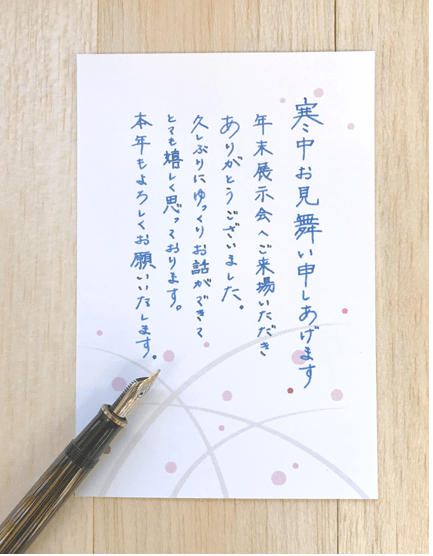 寒中お見舞い申しあげます
年末展示会へご来場いただき
ありがとうございました。
久しぶりにゆっくりお話ができて
とても嬉しく思っております。
本年もよろしくお願いいたします。